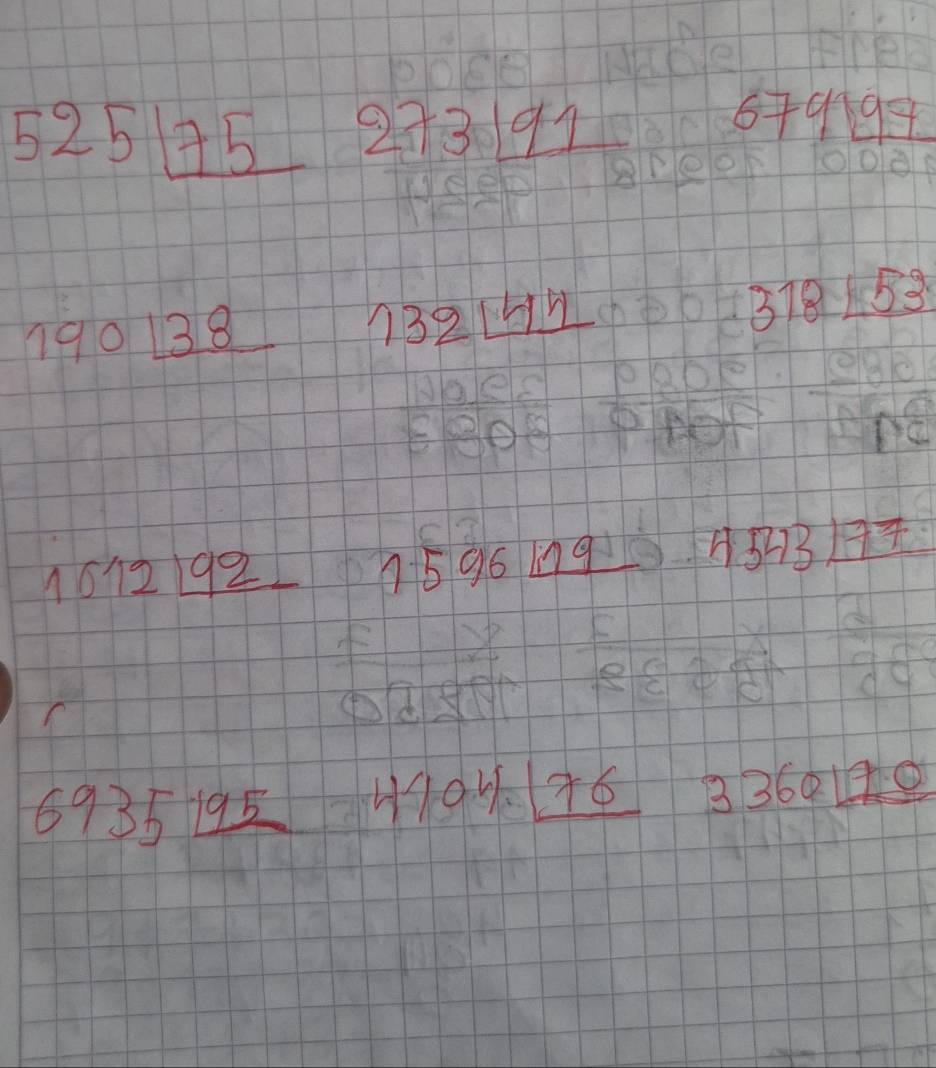 525 75 273 91 679 97
190 38 132 44 318 53
1012 92 1596 19 4543 77
6935 95 4104 76 3360 70